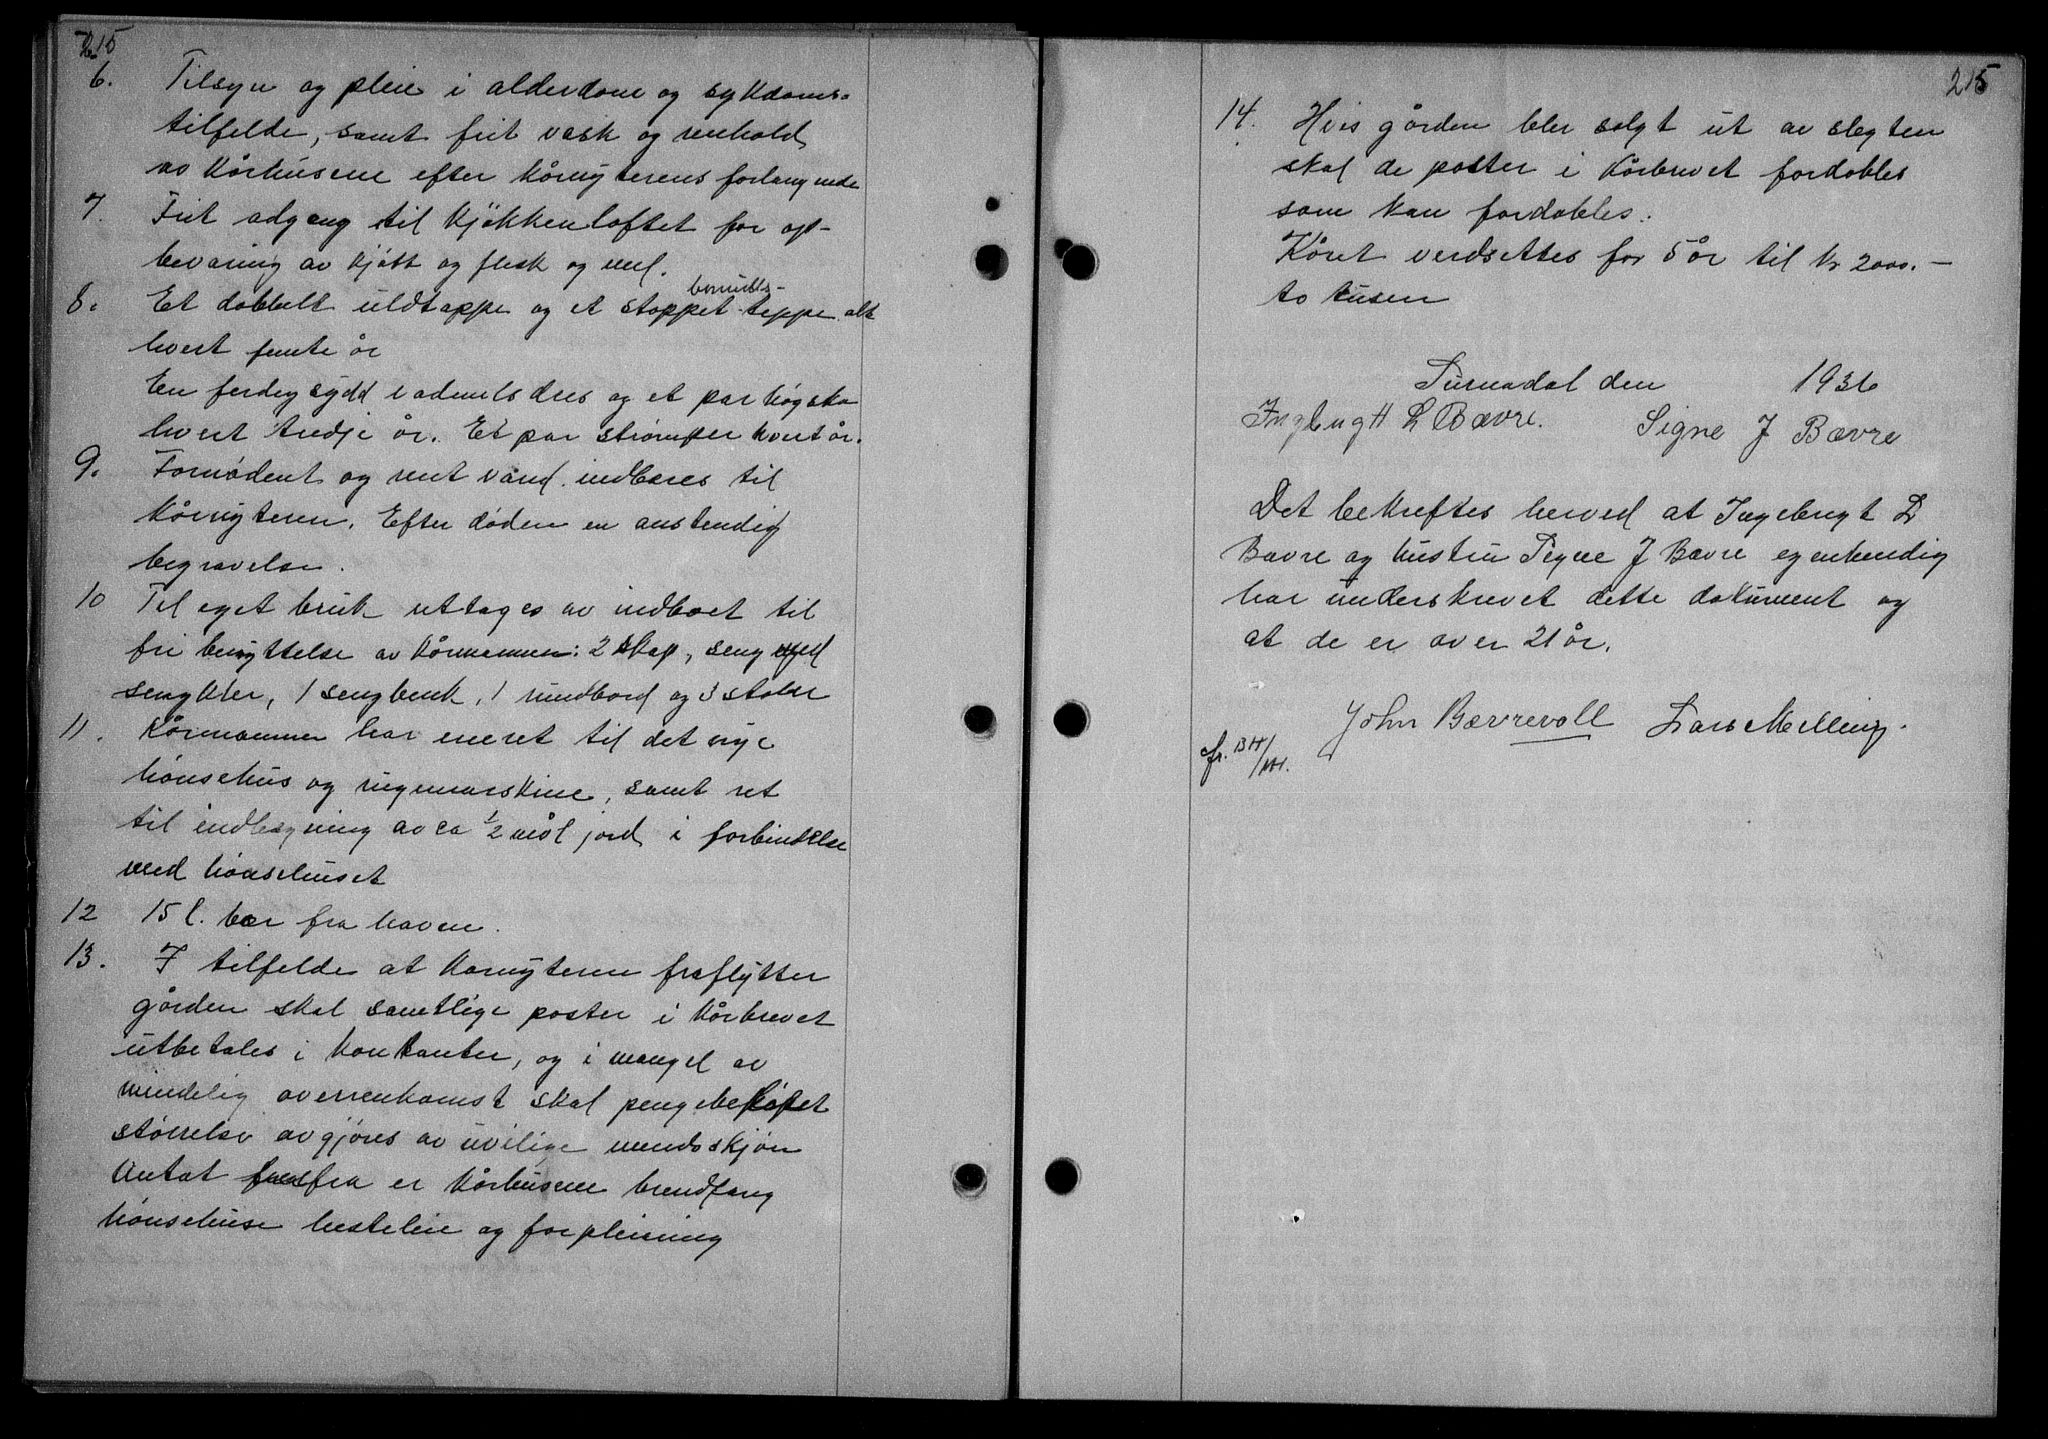 215
6. Tilsyn og pleie i alderdom og sykdoms-
tilfelde, samt frit vask og renhold
av kårhusene efter kårnyterens forlangende
7. Frit adgang til kjøkkenloftet for op-
bevaring av kjøtt og flesk og mel.
bomulds-
8. Et dobbelt uldteppe og et stoppet teppe alt
hvert femte år
En ferdigsydd vadmelsdres og et par høgsko
hvert tredje år. Et par strømper hvert år.
9. Fornødent og rent vand indbæres til
kårnyteren. Efter døden en anstendig
begravelse.
10 Til eget bruk uttages av indboet til
fri benyttelse av kårmannen: 2 skap, seng med
sengklær, 1 sengbenk, 1 rundbord og 3 stoler
11. Kårmannen har eneret til det nye
hønsehus og rugemaskine, samt ret
til indhegning av ca 1/2 mål jord i forbindelse
med hønsehuset
12 15 l. bær fra haven.
13. I tilfelde at kårnyteren fraflytter
gården skal samtlige poster i kårbrevet
utbetales i kontanter, og i mangel av
mindelig overrenkomst skal pengebeløpet
størrelse avgjøres av uvilige mendsskjøn
Untat herfra er kårhusene brendfang
hønsehuse hesteleie og forpleining
215
14. Hvis gården blir solgt ut av slegten
skal de poster i kårbrevet fordobles
som kan fordobles.
Kåret verdsettes for 5 år til kr 2000.-
to tusen
Surnadal den 1936
Ingebrigt L Bævre. Signe J Bævre
Det bekreftes herved at Ingebrigt L
Bævre og hustru Signe J Bævre egenhendig
har underskrevet dette dokument og
at de er over 21 år.
John Bævrevoll Lars Melling.